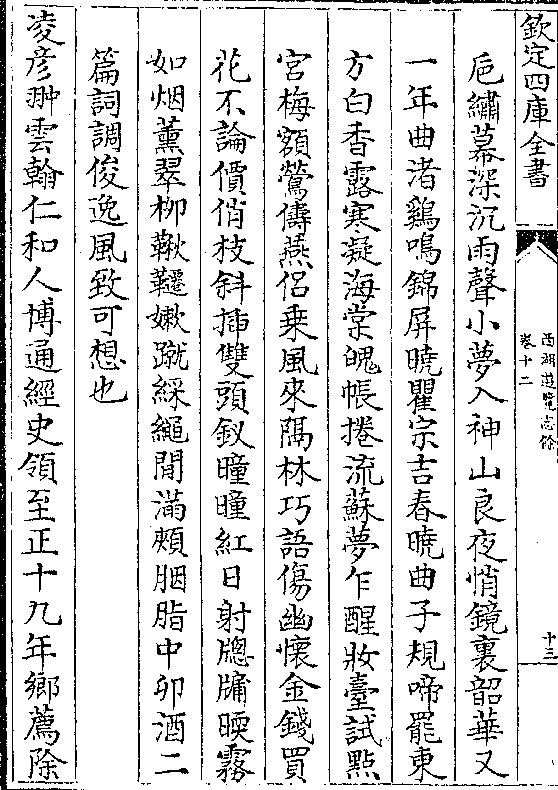 欽定四庫全書
西湖遊覽志餘
卷十二
十三
巵繡幕深沉雨聲小夢入神山良夜悄鏡裏韶華又
一年曲渚鷄鳴錦屏曉瞿宗吉春曉曲子規啼罷東
方白香露寒凝海棠魄帳捲流蘇夢乍醒妝臺試點
宮梅額鶯儔燕侶乗風來隔林巧語傷幽懷金錢買
花不論價俏枝斜揷雙頭釵曈曈紅日射牕牗暎霧
如烟薰翠柳鞦韆嫰蹴綵繩閒滿頰胭脂中卯酒二
篇詞調俊逸風致可想也
凌彦翀雲翰仁和人博通經史領至正十九年鄉薦除